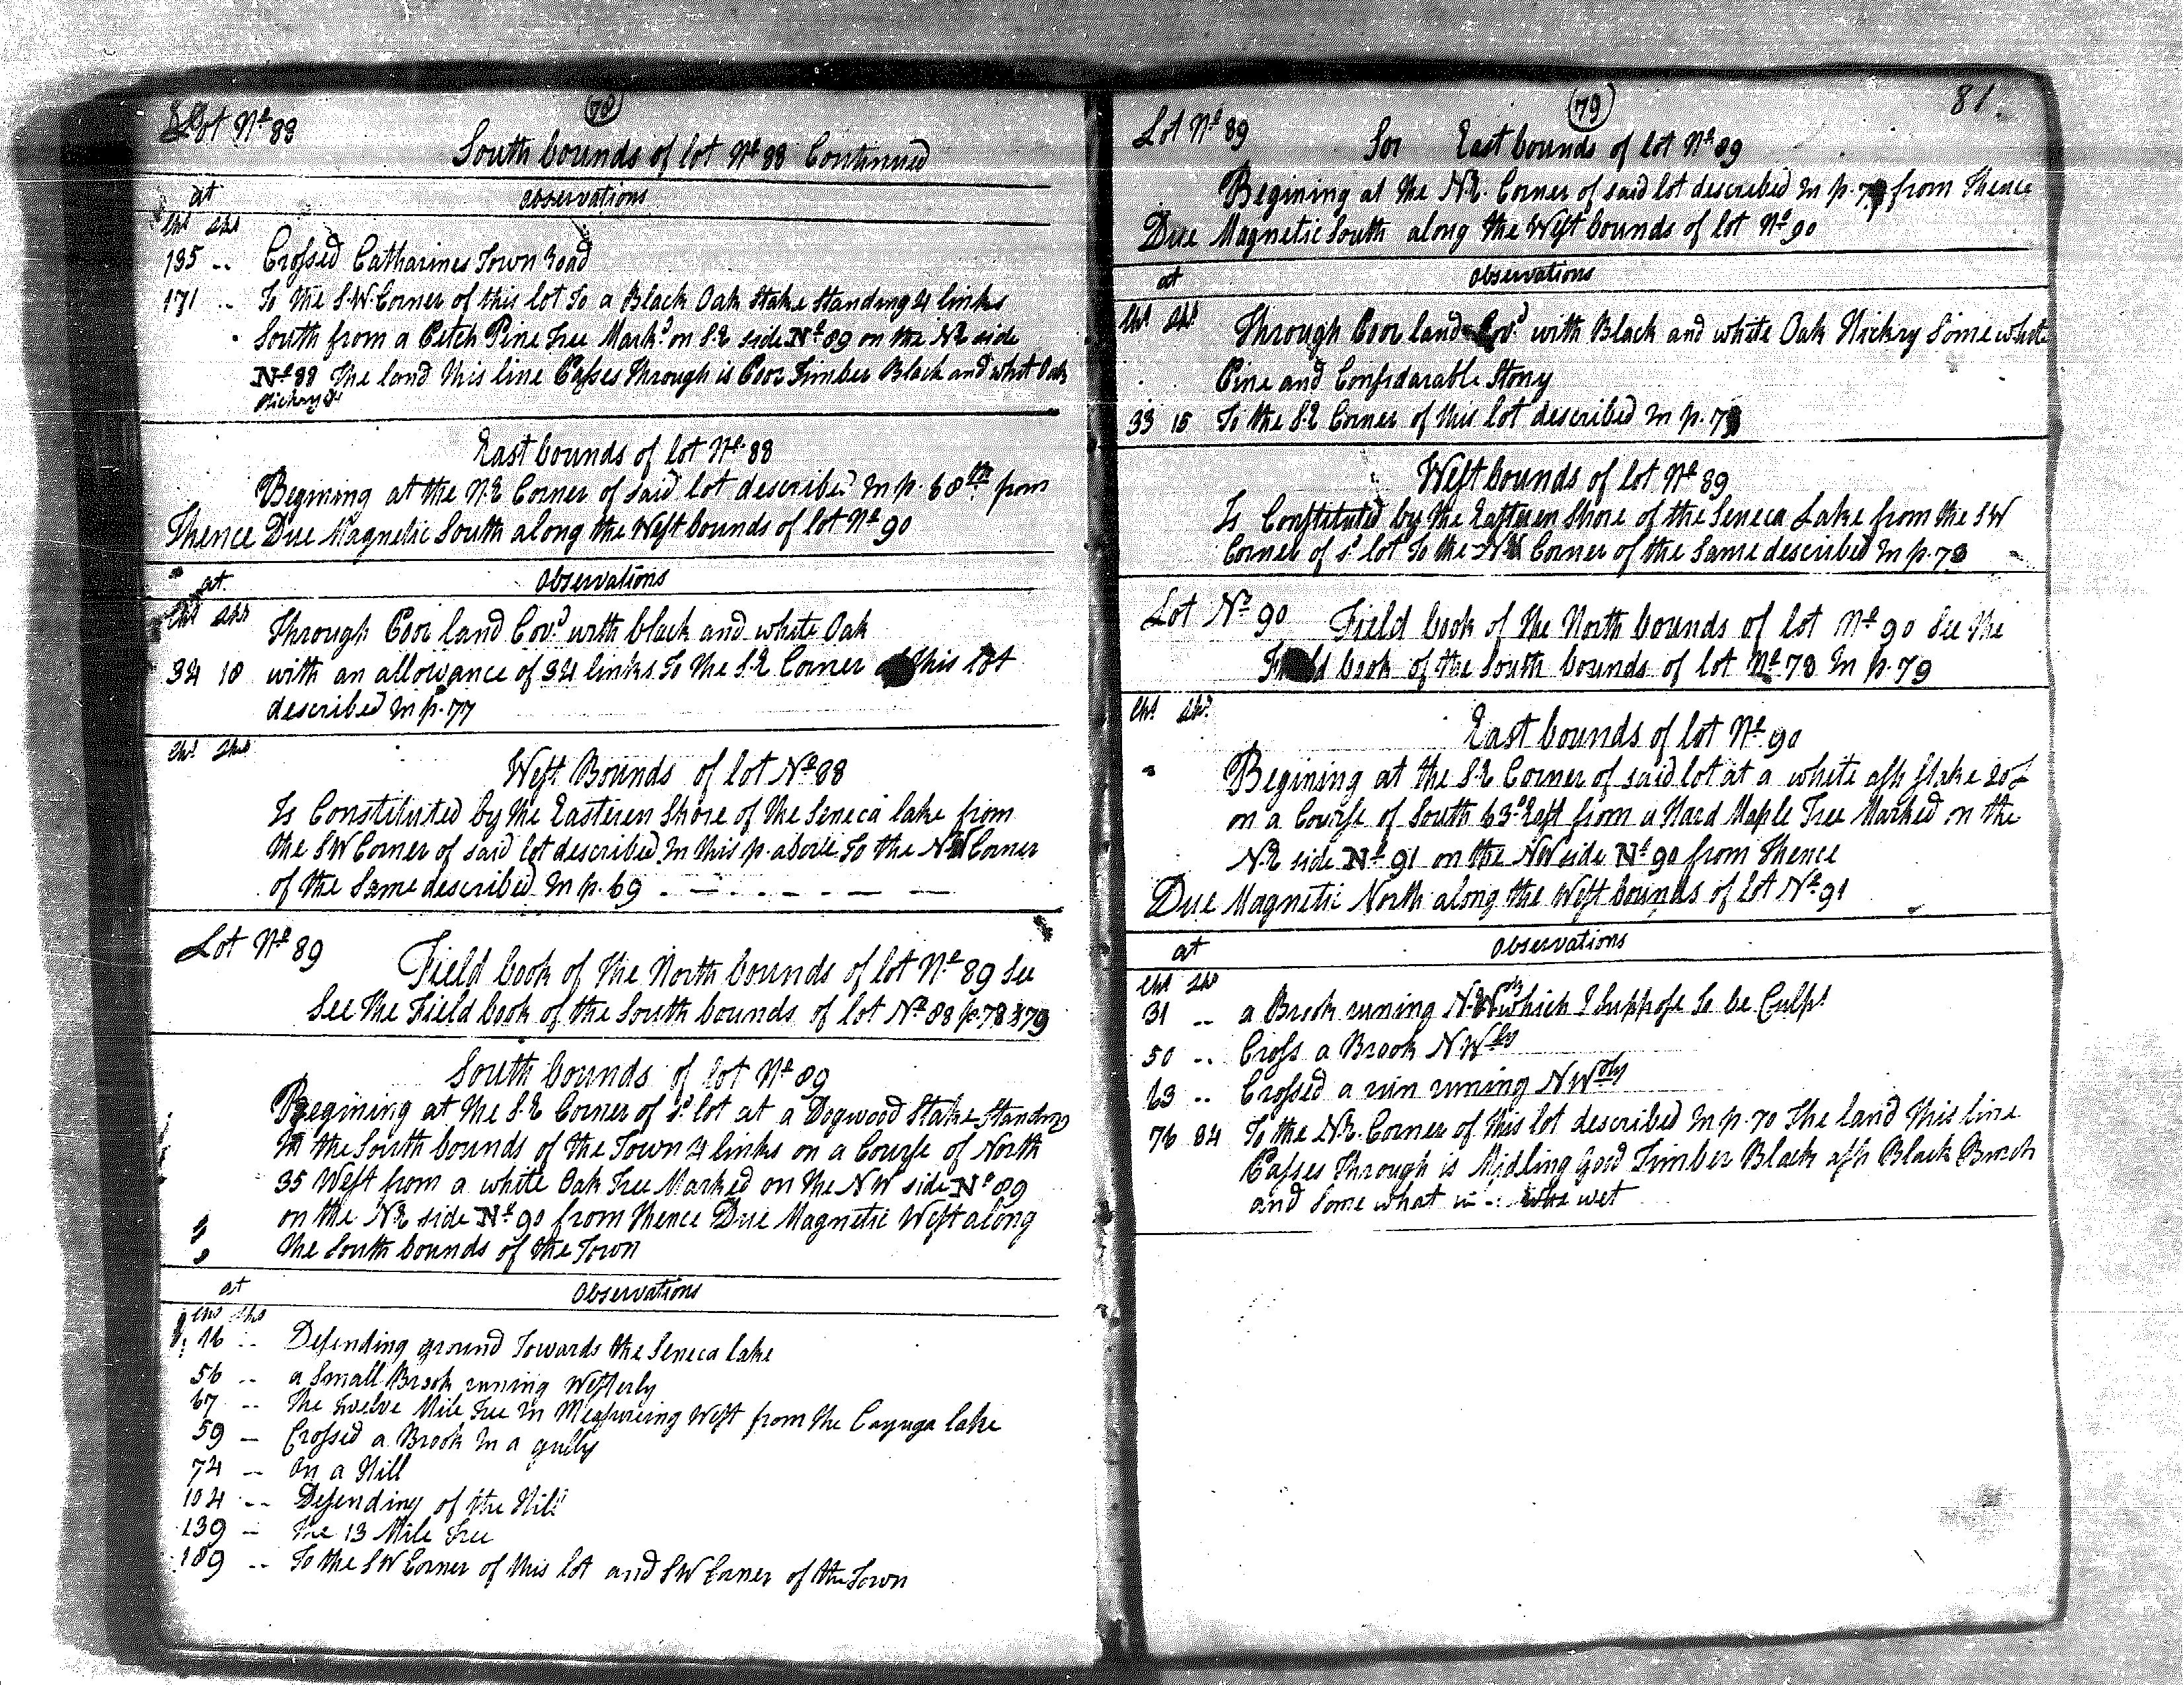 (78)
Lot Nº 88
South bounds of lot Nº 88 Continued
at observations
Chs Lks
135 .. Crossed Catharines Town Road
171 .. To the S.W. Corner of this lot To a Black Oak Stake Standing 4 links
South from a Petch Pine Tree Markd on S.E side Nº 89 on the NE side
Nº 88 The land this line Passes Through is Poor Timber Black and whit Oak
Hickry &c
East bounds of lot Nº 88
Begining at the N.E Corner of said lot described in p. 68th from
Thence Due Magnetic South along the West bounds of lot Nº 90
at observations
Chs Lks
Through Poor land Covd with black and white Oak
34 18 with an allowance of 34 links To the S.E Corner of this lot
described in p. 77
Chs Lks
West Bounds of lot Nº 88
Is Constituted by the Eastern Shore of the Seneca lake from
the SW Corner of said lot described in this p. above To the NW Corner
of the Same described in p. 69 - — - - - - — —
Lot Nº 89
Field book of the North bounds of lot Nº 89 See
See The Field book of the South bounds of lot Nº 88 p. 78 & 79
South bounds of lot Nº 89
Begining at the S.E Corner of sd lot at a Dogwood Stake Standing
in the South bounds of the Town 4 links on a Course of North
35 West from a white Oak Tree Marked on the NW side Nº 89
on the N.E side Nº 90 from thence Due Magnetic West along
the South bounds of the Town
at observations
Chs Lks
16 .. Desending ground Towards the Seneca lake
56 .. a Small Brook runing Westerly
67 .. The twelve Mile Tree in Measureing West from the Cayuga lake
59 — Crossed a Brook in a gully
74 .. On a Hill
104 .. Desending of the Hill
139 — The 13 Mile Tree
189 .. To the SW Corner of this lot and SW Corner of the Town
(79)
81
Lot Nº 89
for East bounds of lot Nº 89
Begining at the N.E. Corner of said lot described in p. from Thence
Due Magnetic South along the West bounds of lot Nº 90
at observations
Chs Lks
Through Poor land Covd with Black and white Oak Hickry Some white
Pine and Considarable Stony
33 15 To the S.E Corner of this lot described in p. 78
West bounds of lot Nº 89
Is Constituted by the Easteren Shore of the Seneca Lake from the SW
Corner of sd lot To the NW Corner of the Same described in p. 78
Lot Nº 90
Field book of the North bounds of lot Nº 90 See the
Field book of the South bounds of lot Nº 78 in p. 79
Chs Lks
East bounds of lot Nº 90
Begining at the S.E Corner of said lot at a white ash Stake 20 L
on a Course of South 63º East from a Hard Maple Tree Marked on the
N.E side Nº 91 on the NW side Nº 90 from Thence
Due Magnetic North along the West bounds of lot Nº 91
at observations
Chs Lks
31 .. a Brook runing N.W which I Suppose to be Culps
50 .. Cross a Brook NWly
63 .. Crossed a run runing NWerly
76 84 To the N.E. Corner of this lot described in p. 70 The land this line
Passes Through is Midling good Timber Black ash Black Birch
and Some what wet